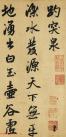 趵突泉
濼水發源天下無平
地湧出白玉壺谷虛